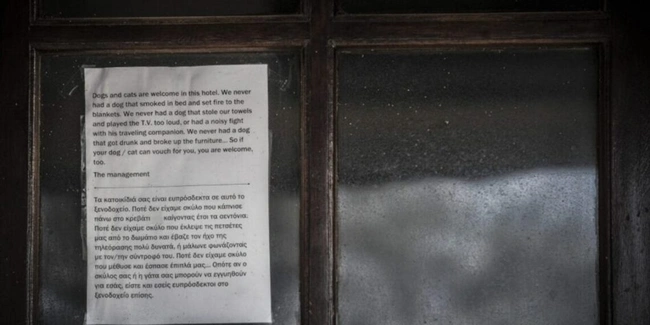 Dogs and cats are welcome in this hotel. We never
had a dog that smoked in bed and set fire to the
blankets. We never had a dog that stole our towels
and played the T.V. too loud, or had a noisy fight
with his traveling companion. We never had a dog
that got drunk and broke up the furniture... So if
your dog / cat can vouch for you, you are welcome,
too.
The management
Τα κατοικίδιά σας είναι ευπρόσδεκτα σε αυτό το
ξενοδοχείο. Ποτέ δεν είχαμε σκύλο που κάπνισε
πάνω στο κρεβάτι καίγοντας έτσι τα σεντόνια.
Ποτέ δεν είχαμε σκύλο που έκλεψε τις πετσέτες
μας από το δωμάτιο και έβαζε τον ήχο της
τηλεόρασης πολύ δυνατά, ή μάλωνε φωνάζοντας
με τον/την σύντροφό του. Ποτέ δεν είχαμε σκύλο
που μέθυσε και έσπασε έπιπλά μας... Οπότε αν ο
σκύλος σας ή η γάτα σας μπορούν να εγγυηθούν
για εσάς, είστε και εσείς ευπρόσδεκτοι στο
ξενοδοχείο επίσης.